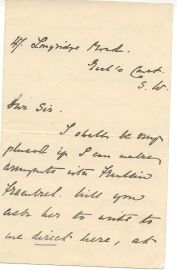 47 Longridge Road.
Earl's Court.
S.W.
Dear Sir.
I shall be very
pleased if I can make
arrangements with Fräulein
will you
ask her to write to
me direct here, at